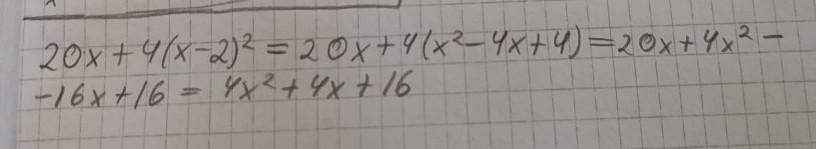 20x+4(x-2)² = 20x+4(x²-4x+4)=20x+4x²-
-16x+16 = 4x²+4x+16